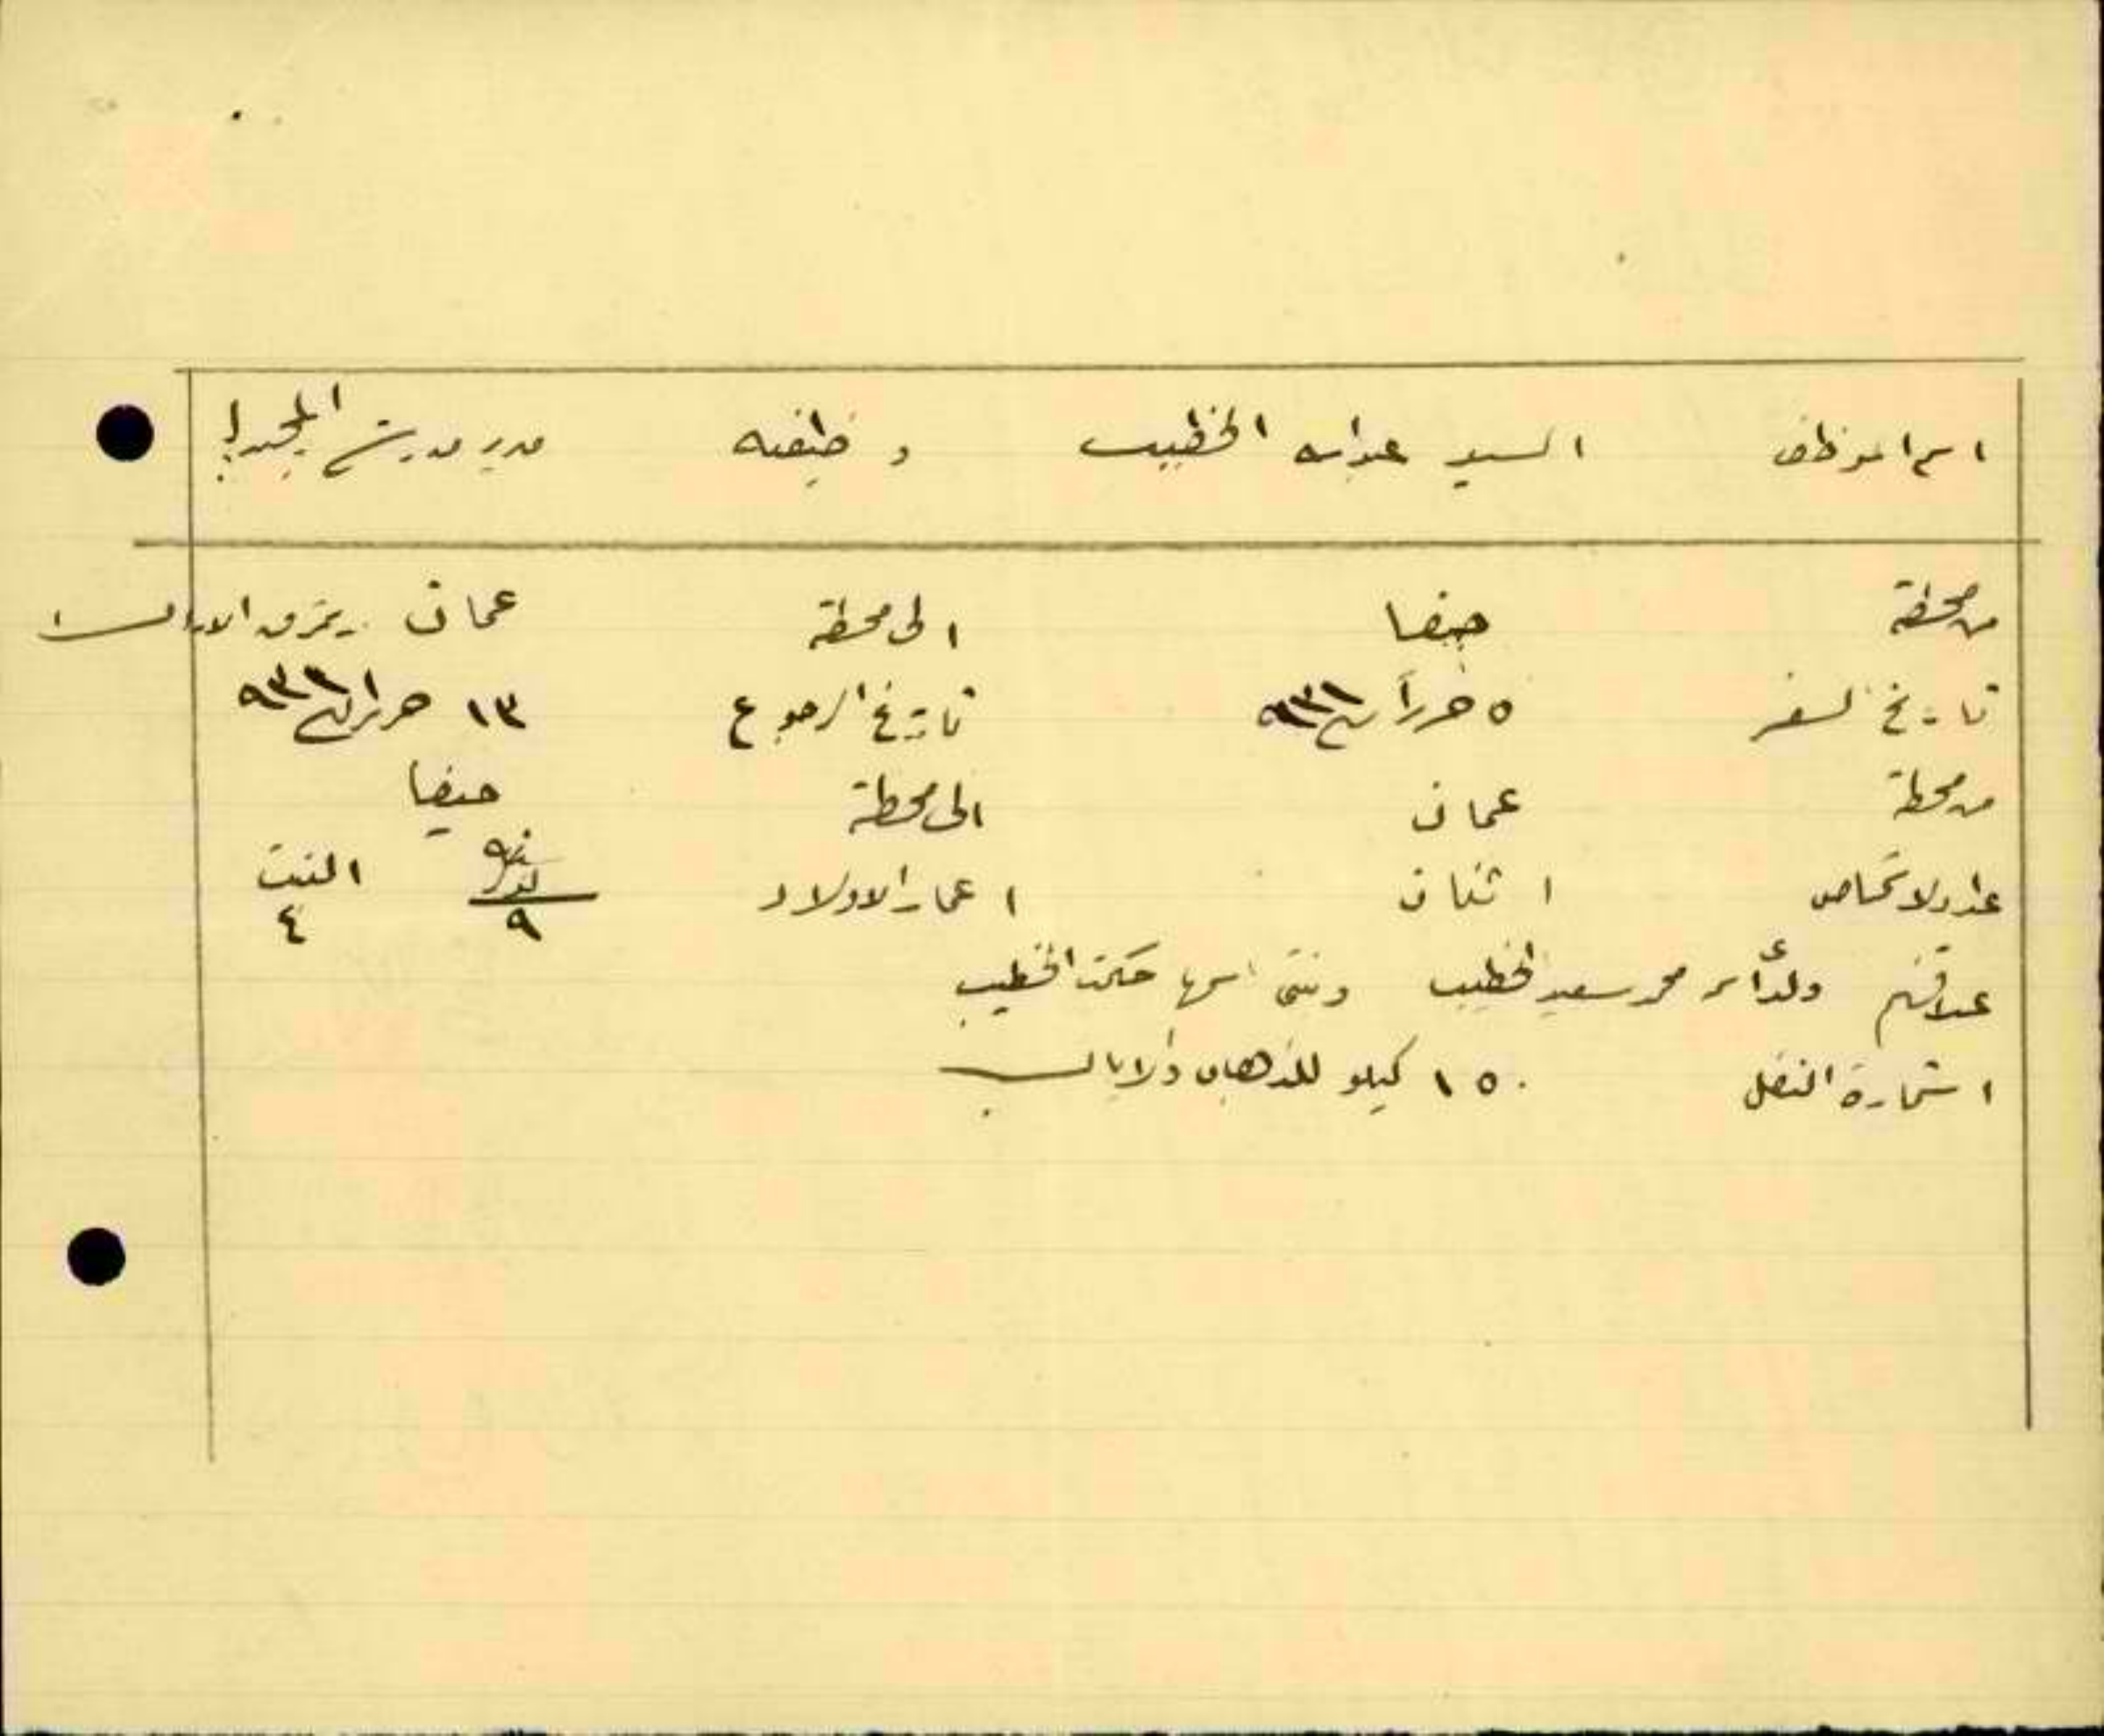 اسم الموظف السيد عبدالله الخطيب وظيفته مدير مدرسة المجيدل
من محطة حيفا الى محطة عمان
تاريخ السفر ٥ حزيران تاريخ الرجوع ١٣ حزيران
من محطة عمان الى محطة حيفا
عدد الاشخاص اثنان اعمار الاولاد ٩ البنت ٤
علاقتهم ولد اسمه محمد سعيد الخطيب وبنتي اسمها حكمت الخطيب
استمارة النقل ١٥٠ كيلو للذهاب والاياب